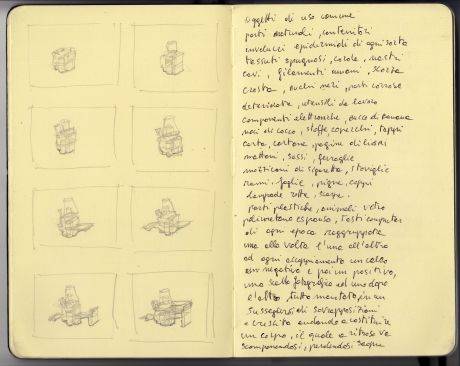 Oggetti di uso comune
parti naturali, contenitori
involucri epidermidi di ogni sorta
tessuti spugnosi, corde, nastri
cavi, filamenti umani, scorza
crosta, buchi neri, parti corrose
deteriorate, utensili da lavoro
componenti elettroniche, bucce di banana
noci di cocco, stoffe, coperchi, tappi
carta, cartone, pagine di libri
mattoni, sassi, ferraglie
mozziconi di sigaretta, stoviglie
rami, foglie, pigne, ceppi
lampade rotte, scarpe.
Parti plastiche, animali vetro
poliuretano espanso, tasti computer
di ogni epoca raggruppate
una alla volta l'una all'altra
ad ogni accoppiamento un calco
in negativo e poi un positivo,
uno scatto fotografico ad uno dopo
l'altro, tutto montato, in un
susseguirsi di sovrapposizioni
e crescita andando a costituire
un corpo, il quale a ritroso va
scomponendosi, perdendosi